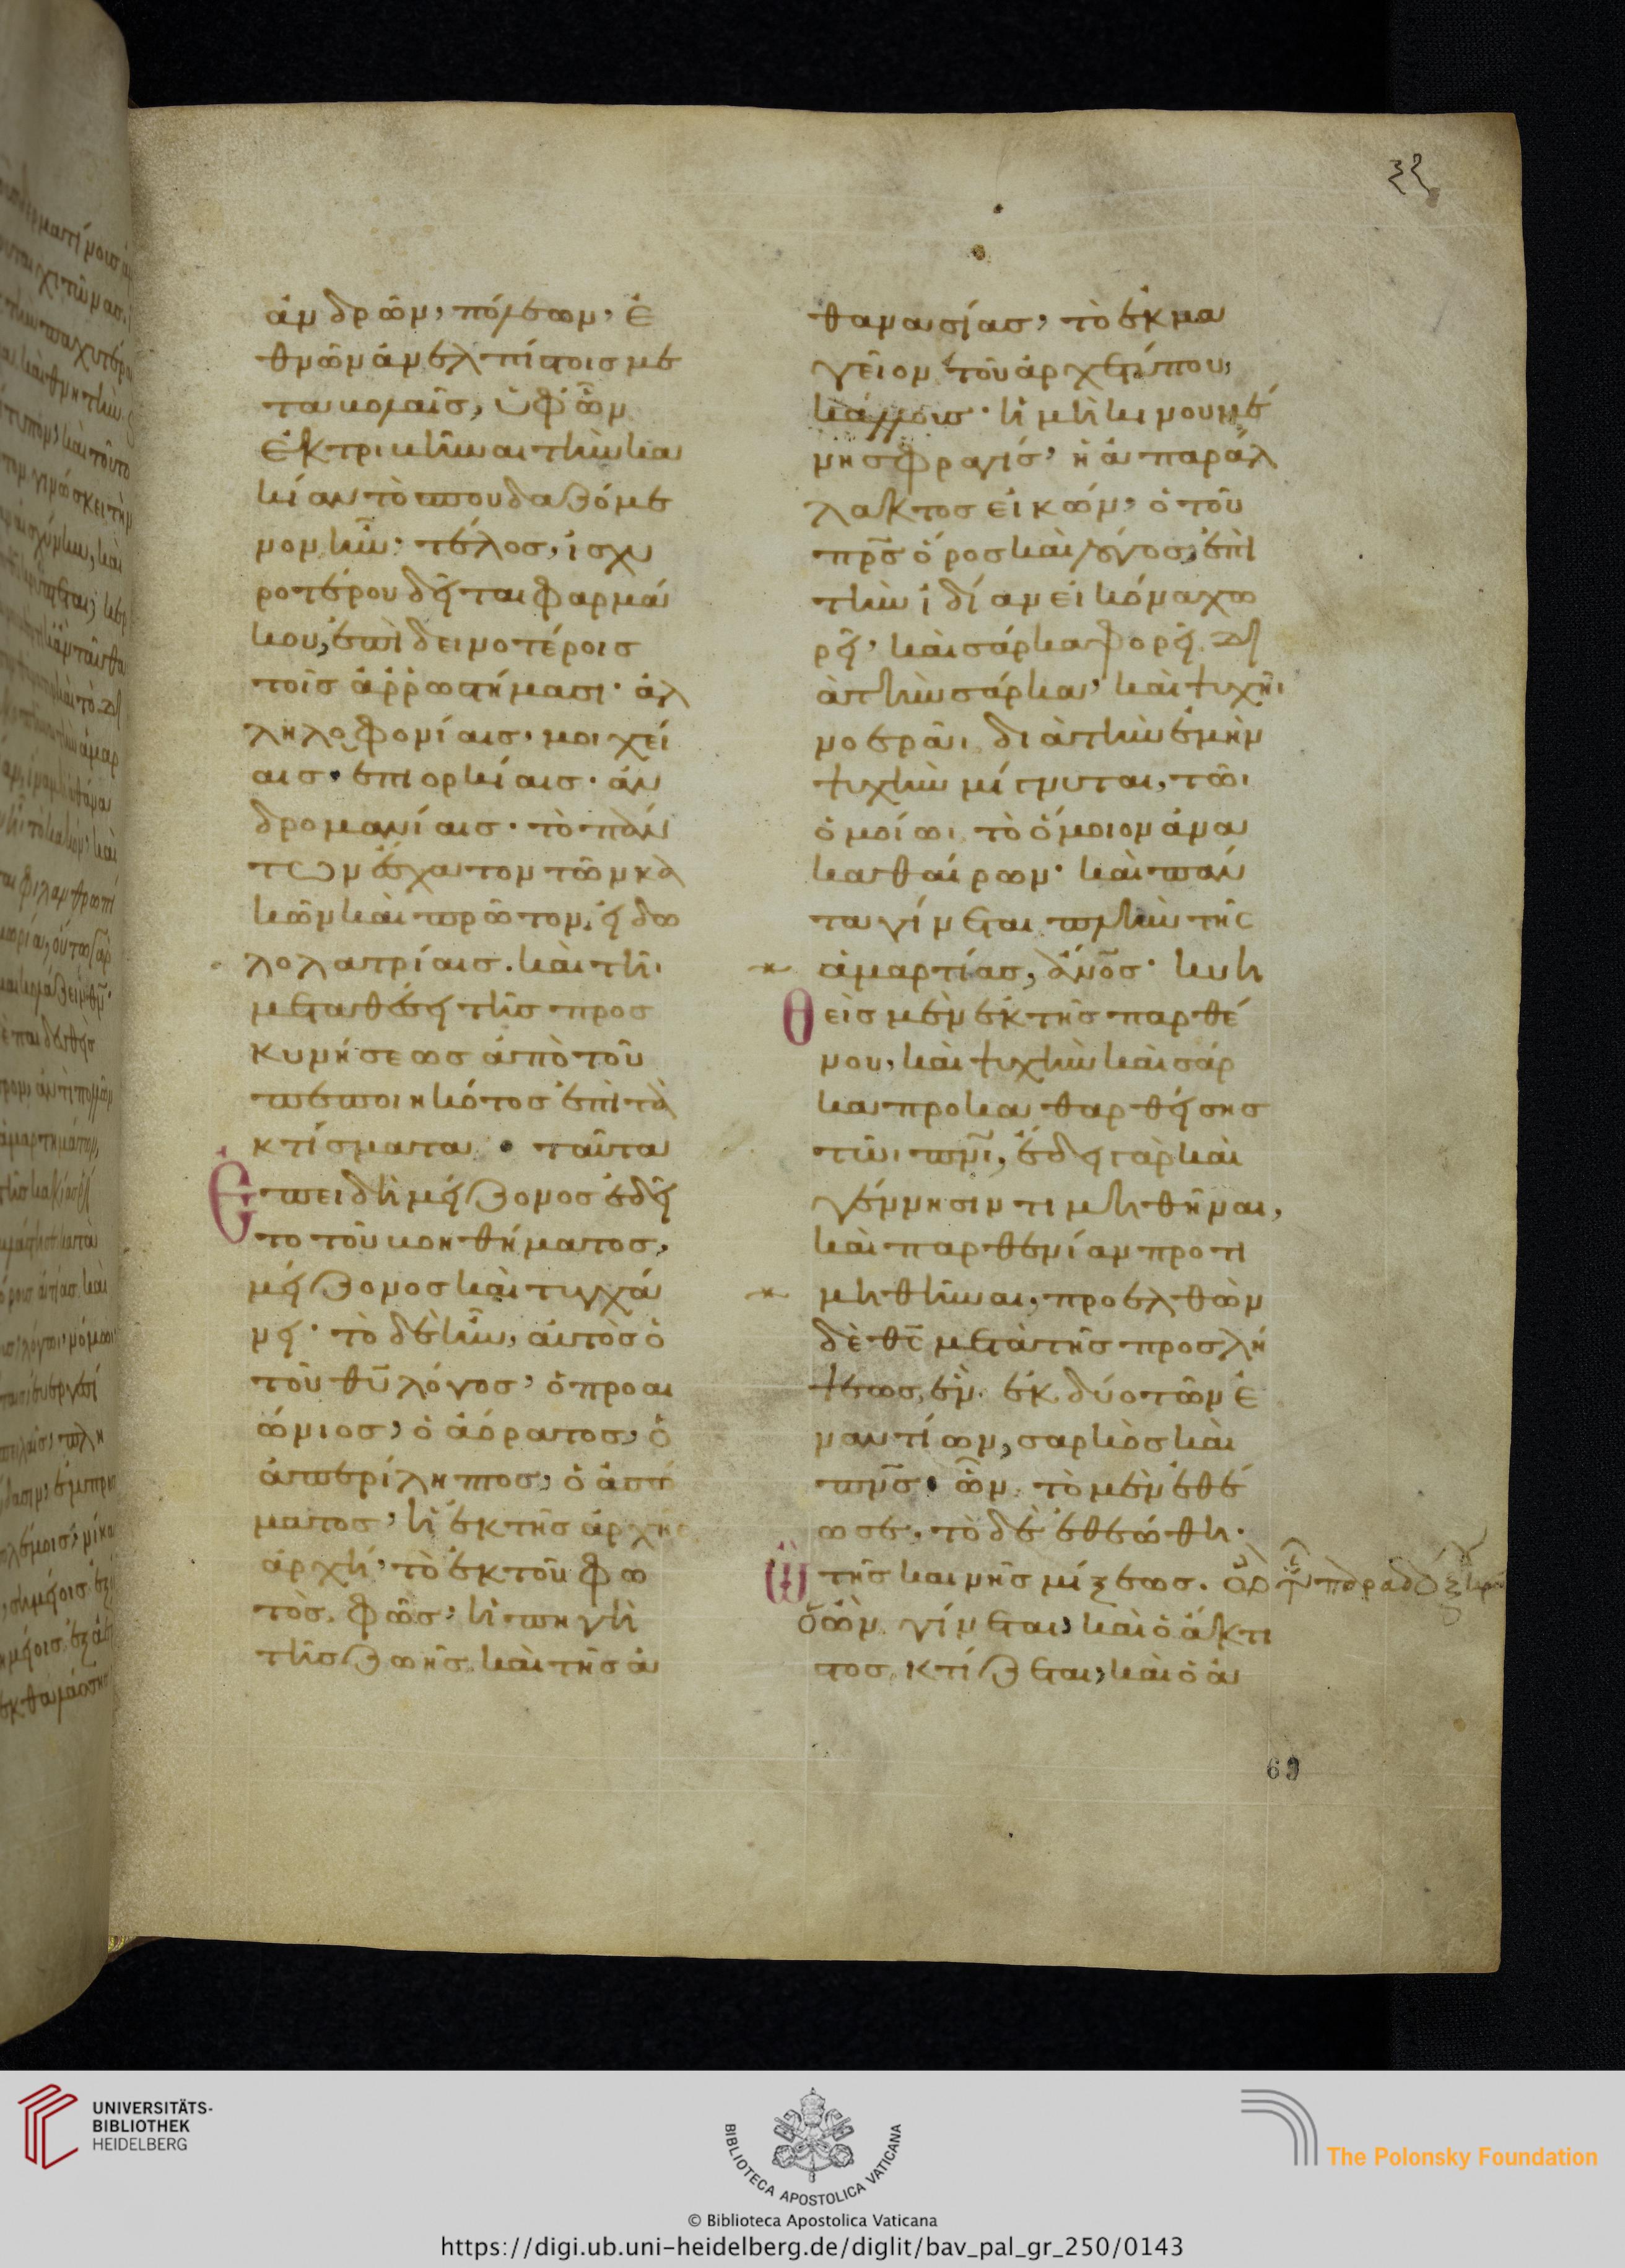 ἀνδρῶν, πόλεων, ἐ
θνῶν ἀνελπίστοις με
ταβολαῖς, ὑφ' ὧν
ἐκτριβῆναι τὴν κα
κίαν τὸ σπουδαζόμε
νον ἦν· τέλος, ἰσχυ
ροτέρου δεῖται φαρμά
κου, ἐπὶ δεινοτέροις
τοῖς ἀρρωστήμασι· ἀλ
ληλοφονίαις· μοιχεί
αις· ἐπιορκίαις· ἀν
δρομανίαις· τὸ πάν
των ἔσχατον τῶν κα
κῶν καὶ πρῶτον, εἰδω
λολατρίαις. καὶ τῆι
μεταθέσει τῆς προσ
κυνήσεως ἀπὸ τοῦ
πεποιηκότος ἐπὶ τὰ
κτίσματα· ταῦτα
ἐπειδὴ μείζονος ἐδεῖ
το τοῦ βοηθήματος,
μείζονος καὶ τυγχά
νει· τὸ δὲ ἦν, αὐτὸς ὁ
τοῦ θ̅υ̅ λόγος, ὁ προαι
ώνιος, ὁ ἀόρατος, ὁ
ἀπερίληπτος, ὁ ἀσώ
ματος, ἡ ἐκ τῆς ἀρχῆς
ἀρχή, τὸ ἐκ τοῦ φω
τὸς φῶς, ἡ πηγὴ
τῆς ζωῆς καὶ τῆς ἀ
θανασίας, τὸ ἐκμα
γεῖον τοῦ ἀρχετύπου
κάλλους· ἡ μὴ κινουμέ
νη σφραγίς, ἡ ἀπαράλ
λακτος εἰκών, ὁ τοῦ
π̅ρ̅ς̅ ὅρος καὶ λόγος, ἐπὶ
τὴν ἰδίαν εἰκόνα χω
ρεῖ, καὶ σάρκα φορεῖ δι
ὰ τὴν σάρκα, καὶ ψυχῆι
νοερᾶι διὰ τὴν ἐμὴν
ψυχὴν μίγνυται, τῶι
ὁμοίωι τὸ ὅμοιον ἀνα
καθαίρων· καὶ πάν
τα γίνεται πλὴν τῆς
ἁμαρτίας, ἄ̅ν̅ο̅ς̅· κυη
θεὶς μὲν ἐκ τῆς παρθέ
νου, καὶ ψυχὴν καὶ σάρ
κα προκαθαρθείσης
τῶι π̅ν̅ι̅, ἔδει γὰρ καὶ
γέννησιν τιμηθῆναι,
καὶ παρθενίαν προτι
μηθῆναι, προελθὼν
δὲ θ̅ς̅ μετὰ τῆς προσλή
ψεως, ἓν ἐκ δύο τῶν ἐ
ναντίων, σαρκὸς καὶ
π̅ν̅ς̅· ὧν τὸ μὲν ἐθέ
ωσε, τὸ δὲ ἐθεώθη.
ὢ τῆς καινῆς μίξεως.
ὁ ὢν γίνεται, καὶ ὁ ἄκτι
στος κτίζεται, καὶ ὁ ἀ
69
UNIVERSITÄTS-
BIBLIOTHEK
HEIDELBERG
BIBLIOTECA APOSTOLICA VATICANA
The Polonsky Foundation
© Biblioteca Apostolica Vaticana
https://digi.ub.uni-heidelberg.de/diglit/bav_pal_gr_250/0143